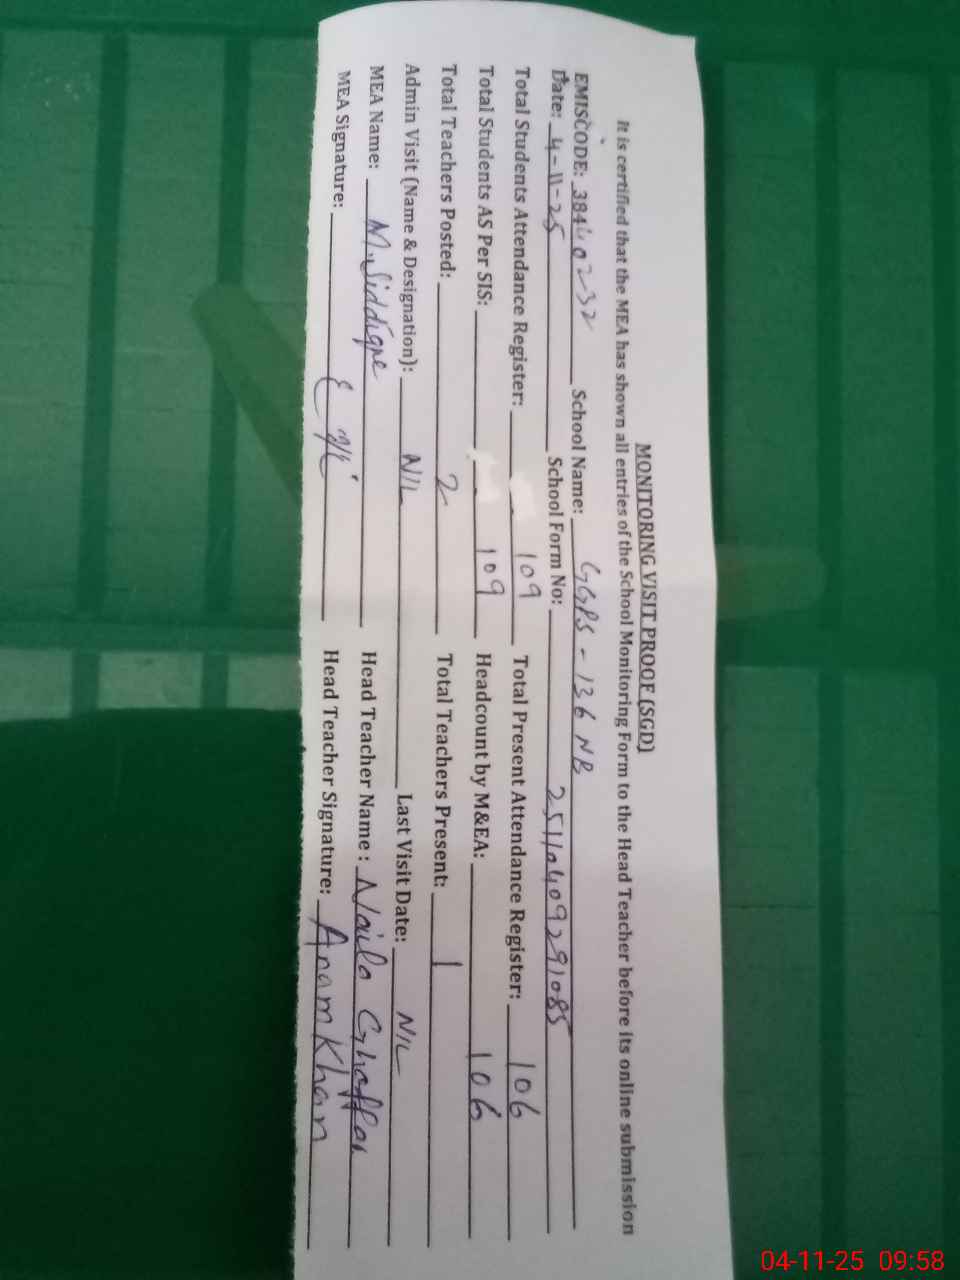 MONITORING VISIT PROOF (SGD)
It is certified that the MEA has shown all entries of the School Monitoring Form to the Head Teacher before its online submission
EMISCODE: 38440232 School Name: GGPS - 136 NB
Date: 4-11-25 School Form No: 25110409291085
Total Students Attendance Register: 109 Total Present Attendance Register: 106
Total Students AS Per SIS: 109 Headcount by M&EA: 106
Total Teachers Posted: 2 Total Teachers Present: 1
Admin Visit (Name & Designation): NIL Last Visit Date: NIL
MEA Name: M. Siddique Head Teacher Name: Naila Ghaffar
MEA Signature: Head Teacher Signature: Anam Khan
04-11-25 09:58